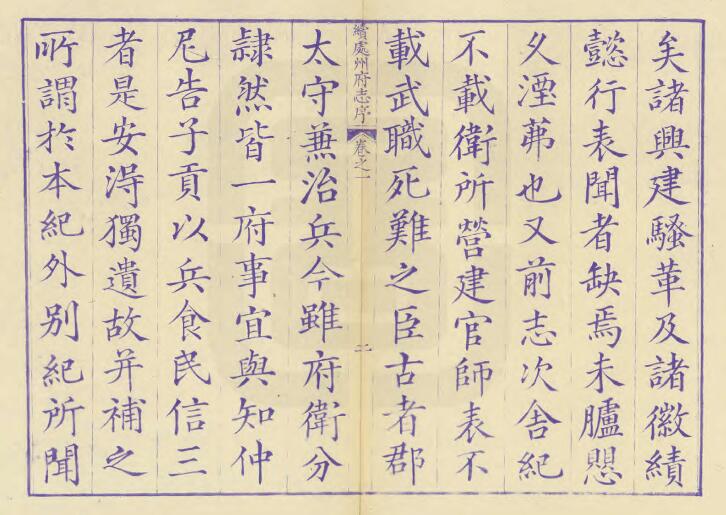 矣諸興建騷革及諸徽績
懿行表聞者缺焉未臚懸
乆湮茀也又前志次舍紀
不載衛所營建官師表不
載武職死難之臣古者郡
續處州府志序 卷之一 二
太守兼治兵今雖府衛分
隷然皆一府事宜與知仲
尼告子貢以兵食民信三
者是安淂獨遺故并補之
所謂於本紀外別紀所聞